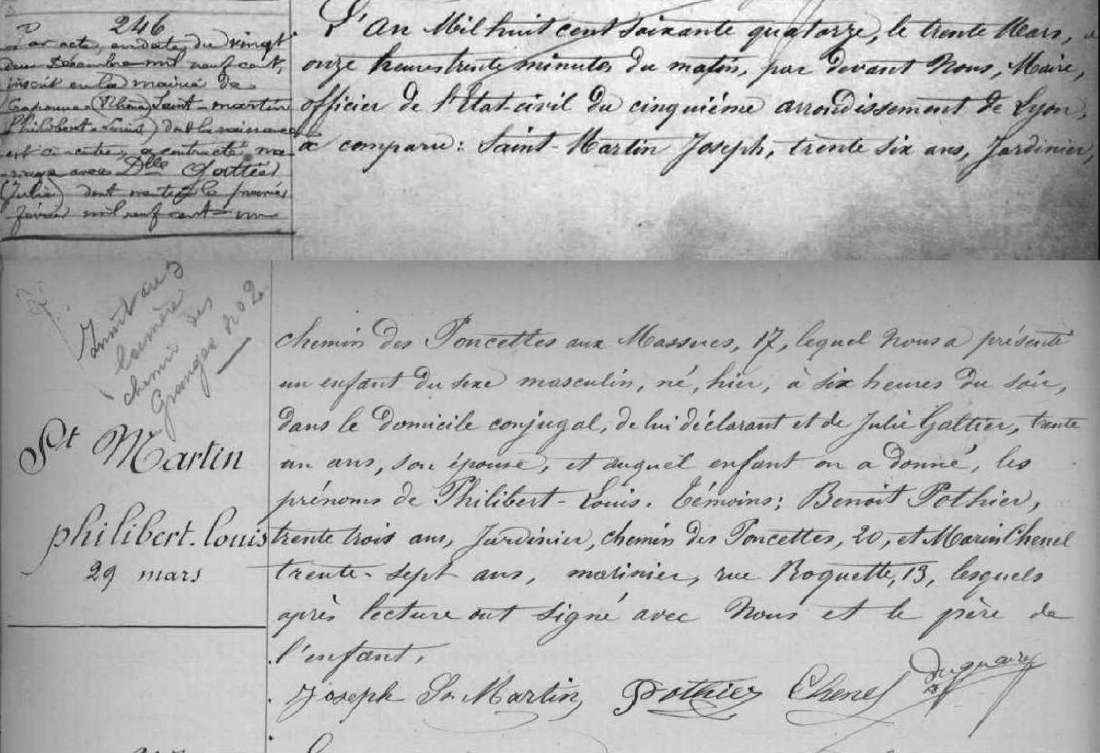 246
Par acte, en date du vingt
deux Décembre mil neuf cent,
inscrit en la mairie de
(Rhône) Saint-Martin
Philibert-Louis) dont la naissance
est ci-contre, a contracté ma-
riage avec Dlle
(Julie) dont mention le premier
février mil neuf cent-un
L'An Mil huit cent soixante quatorze, le trente Mars, à
onze heures trente minutes du matin, par devant Nous, Maire,
officier de l'Etat-civil du cinquième arrondissement de Lyon,
a comparu: Saint-Martin Joseph, trente six ans, Jardinier,
chemin des
Granges No 2
St Martin
philibert-louis
29 mars
chemin des Poncettes aux Massues, 17, lequel Nous a présenté
un enfant du sexe masculin, né, hier, à six heures du soir,
dans le domicile conjugal, de lui déclarant et de Julie Galtier, trente
un ans, son épouse, et auquel enfant on a donné, les
prénoms de Philibert-Louis. Témoins: Benoit Pothier,
trente trois ans, Jardinier, chemin des Poncettes, 20, et Marin Chenel
trente-sept ans, marinier, rue Roquette, 13, lesquels
après lecture ont signé avec Nous et le père de
l'enfant.
Joseph St Martin Pothier Chenel